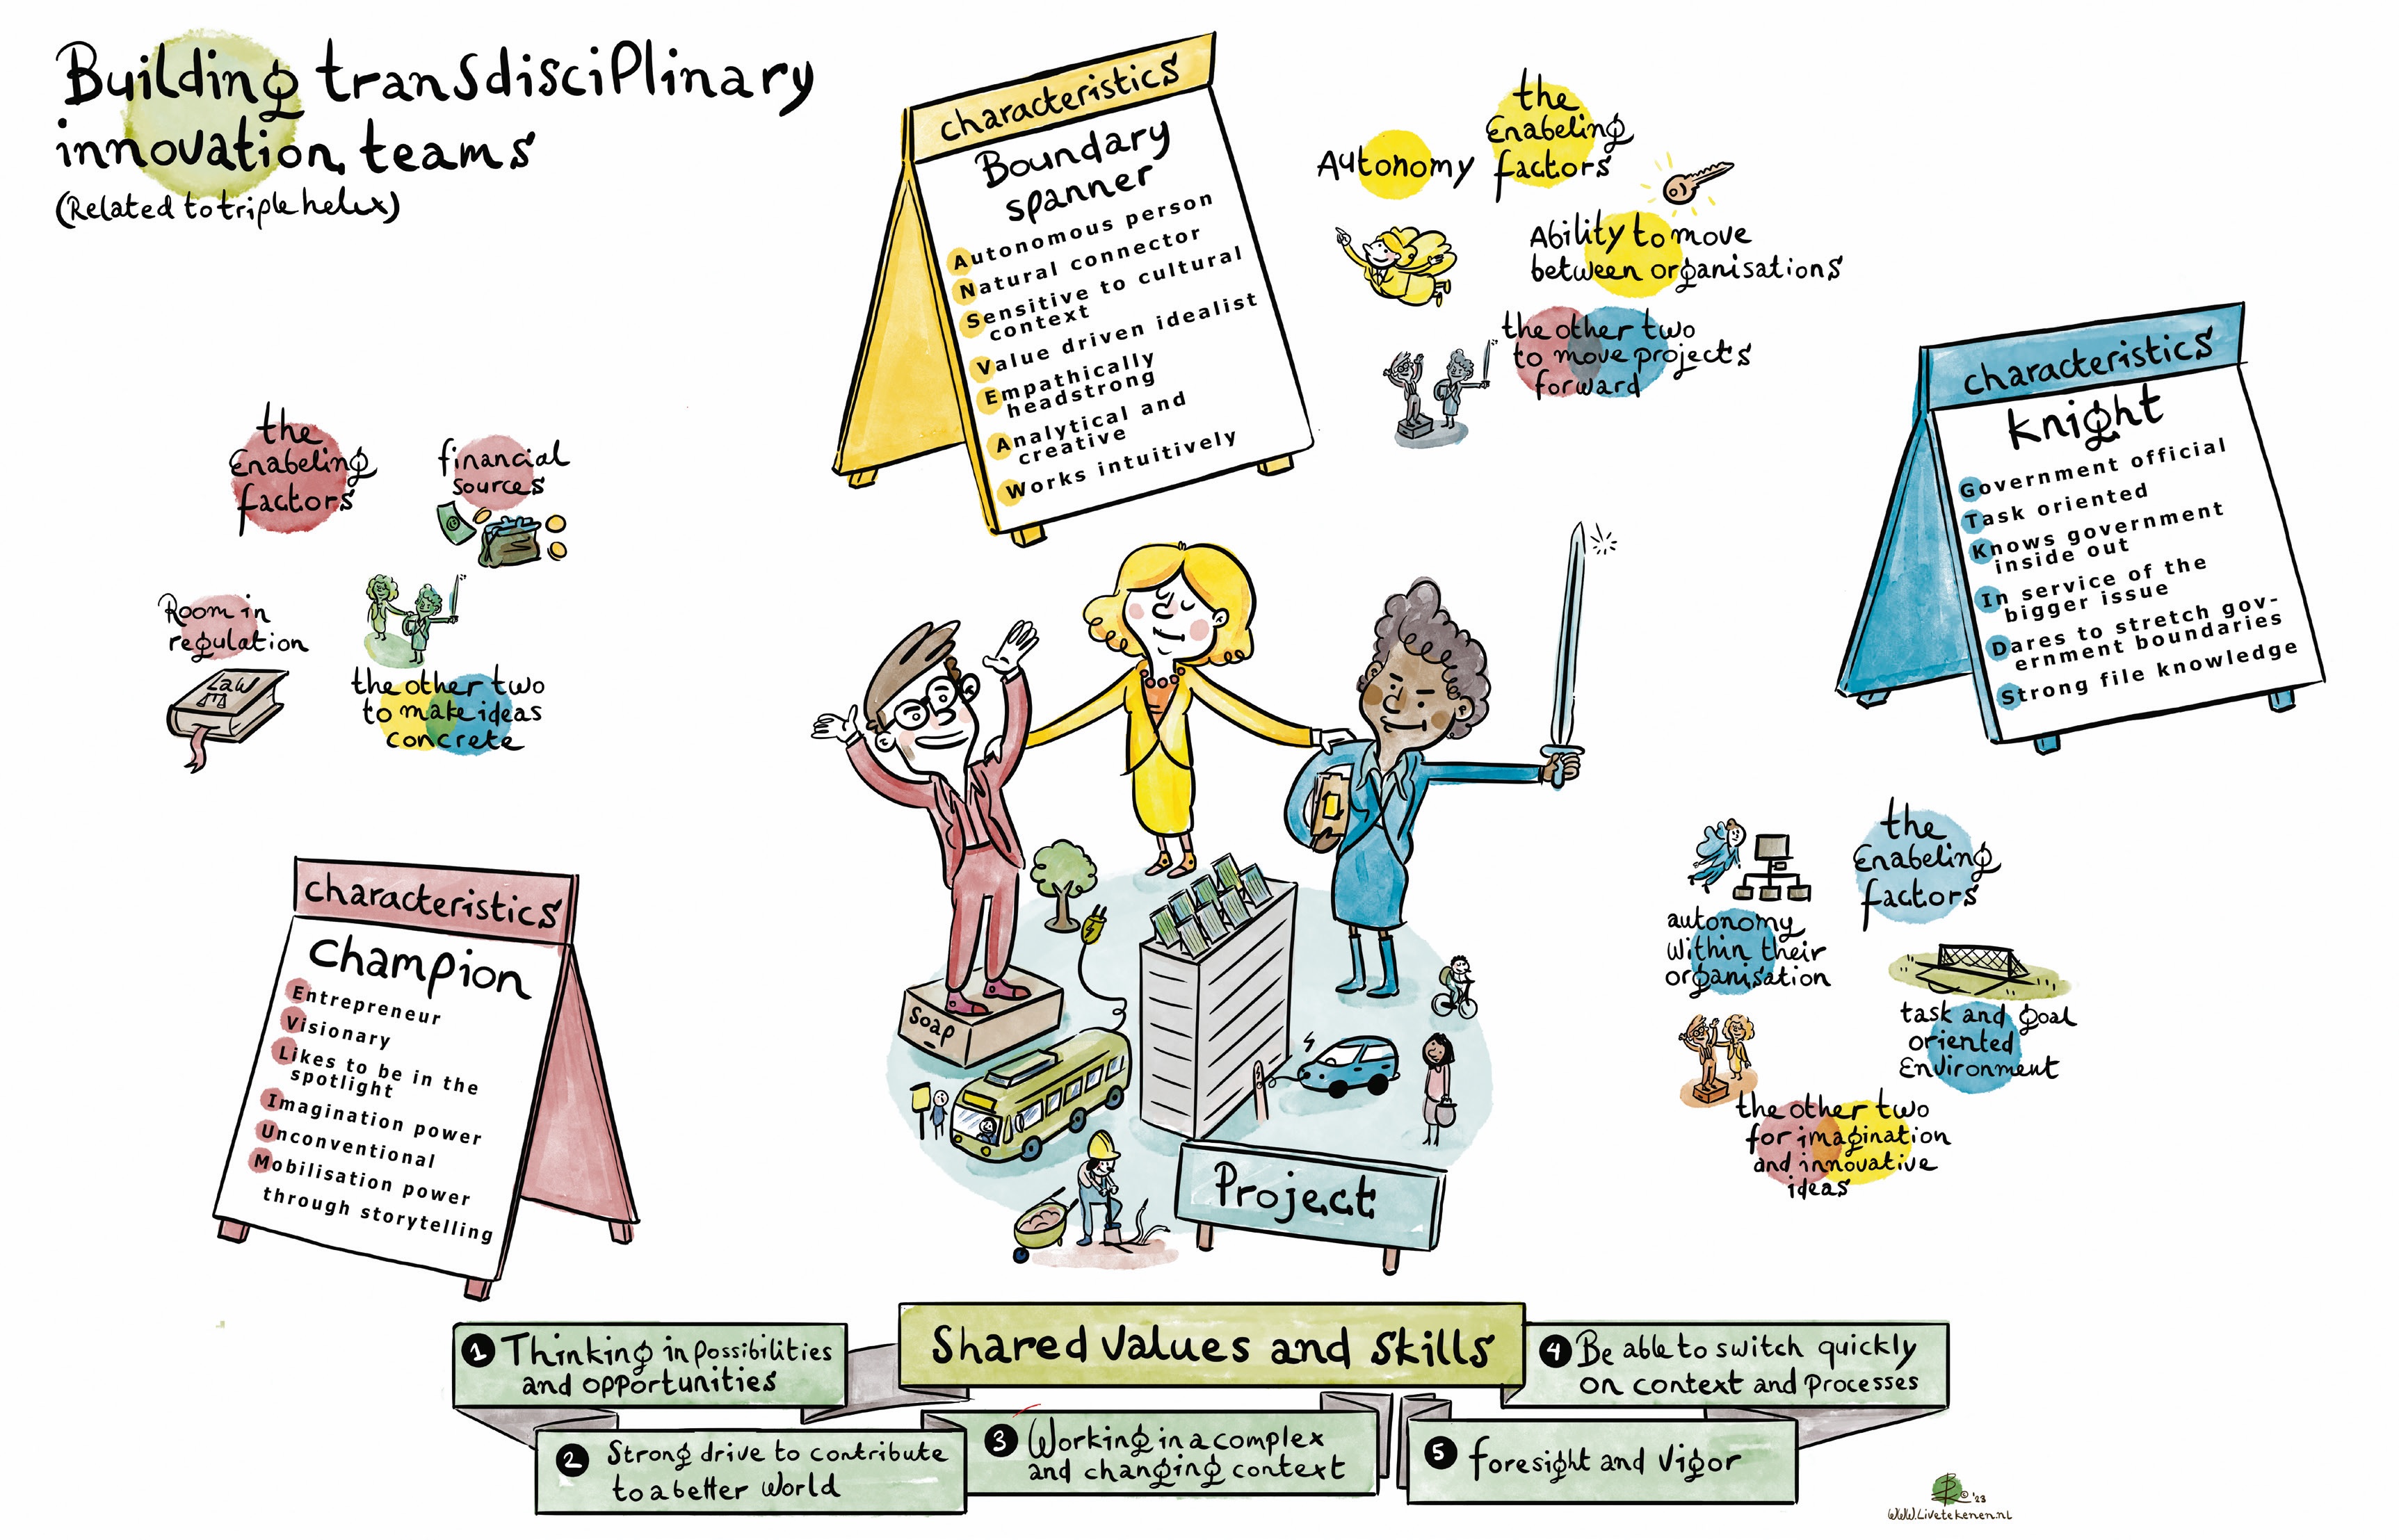 Building transdisciplinary
innovation teams
(Related to triple helix)
characteristics
Boundary
spanner
Autonomous person
Natural connector
Sensitive to cultural
context
Value driven idealist
Empathically
headstrong
Analytical and
creative
Works intuitively
the
Enabeling
factors
Autonomy
Ability to move
between organisations
the other two
to move projects
forward
characteristics
knight
Government official
Task oriented
Knows government
inside out
In service of the
bigger issue
Dares to stretch gov-
ernment boundaries
Strong file knowledge
the
Enabeling
factors
financial
sources
Room in
regulation
LAW
the other two
to make ideas
concrete
characteristics
Champion
Entrepreneur
Visionary
Likes to be in the
spotlight
Imagination power
Unconventional
Mobilisation power
through storytelling
the
Enabeling
factors
autonomy
within their
organisation
task and goal
oriented
Environment
the other two
for imagination
and innovative
ideas
Soap
Project
Shared Values and Skills
1 Thinking in possibilities
and opportunities
2 Strong drive to contribute
to a better world
3 Working in a complex
and changing context
4 Be able to switch quickly
on context and processes
5 foresight and vigor
© '23
www.livetekenen.nl